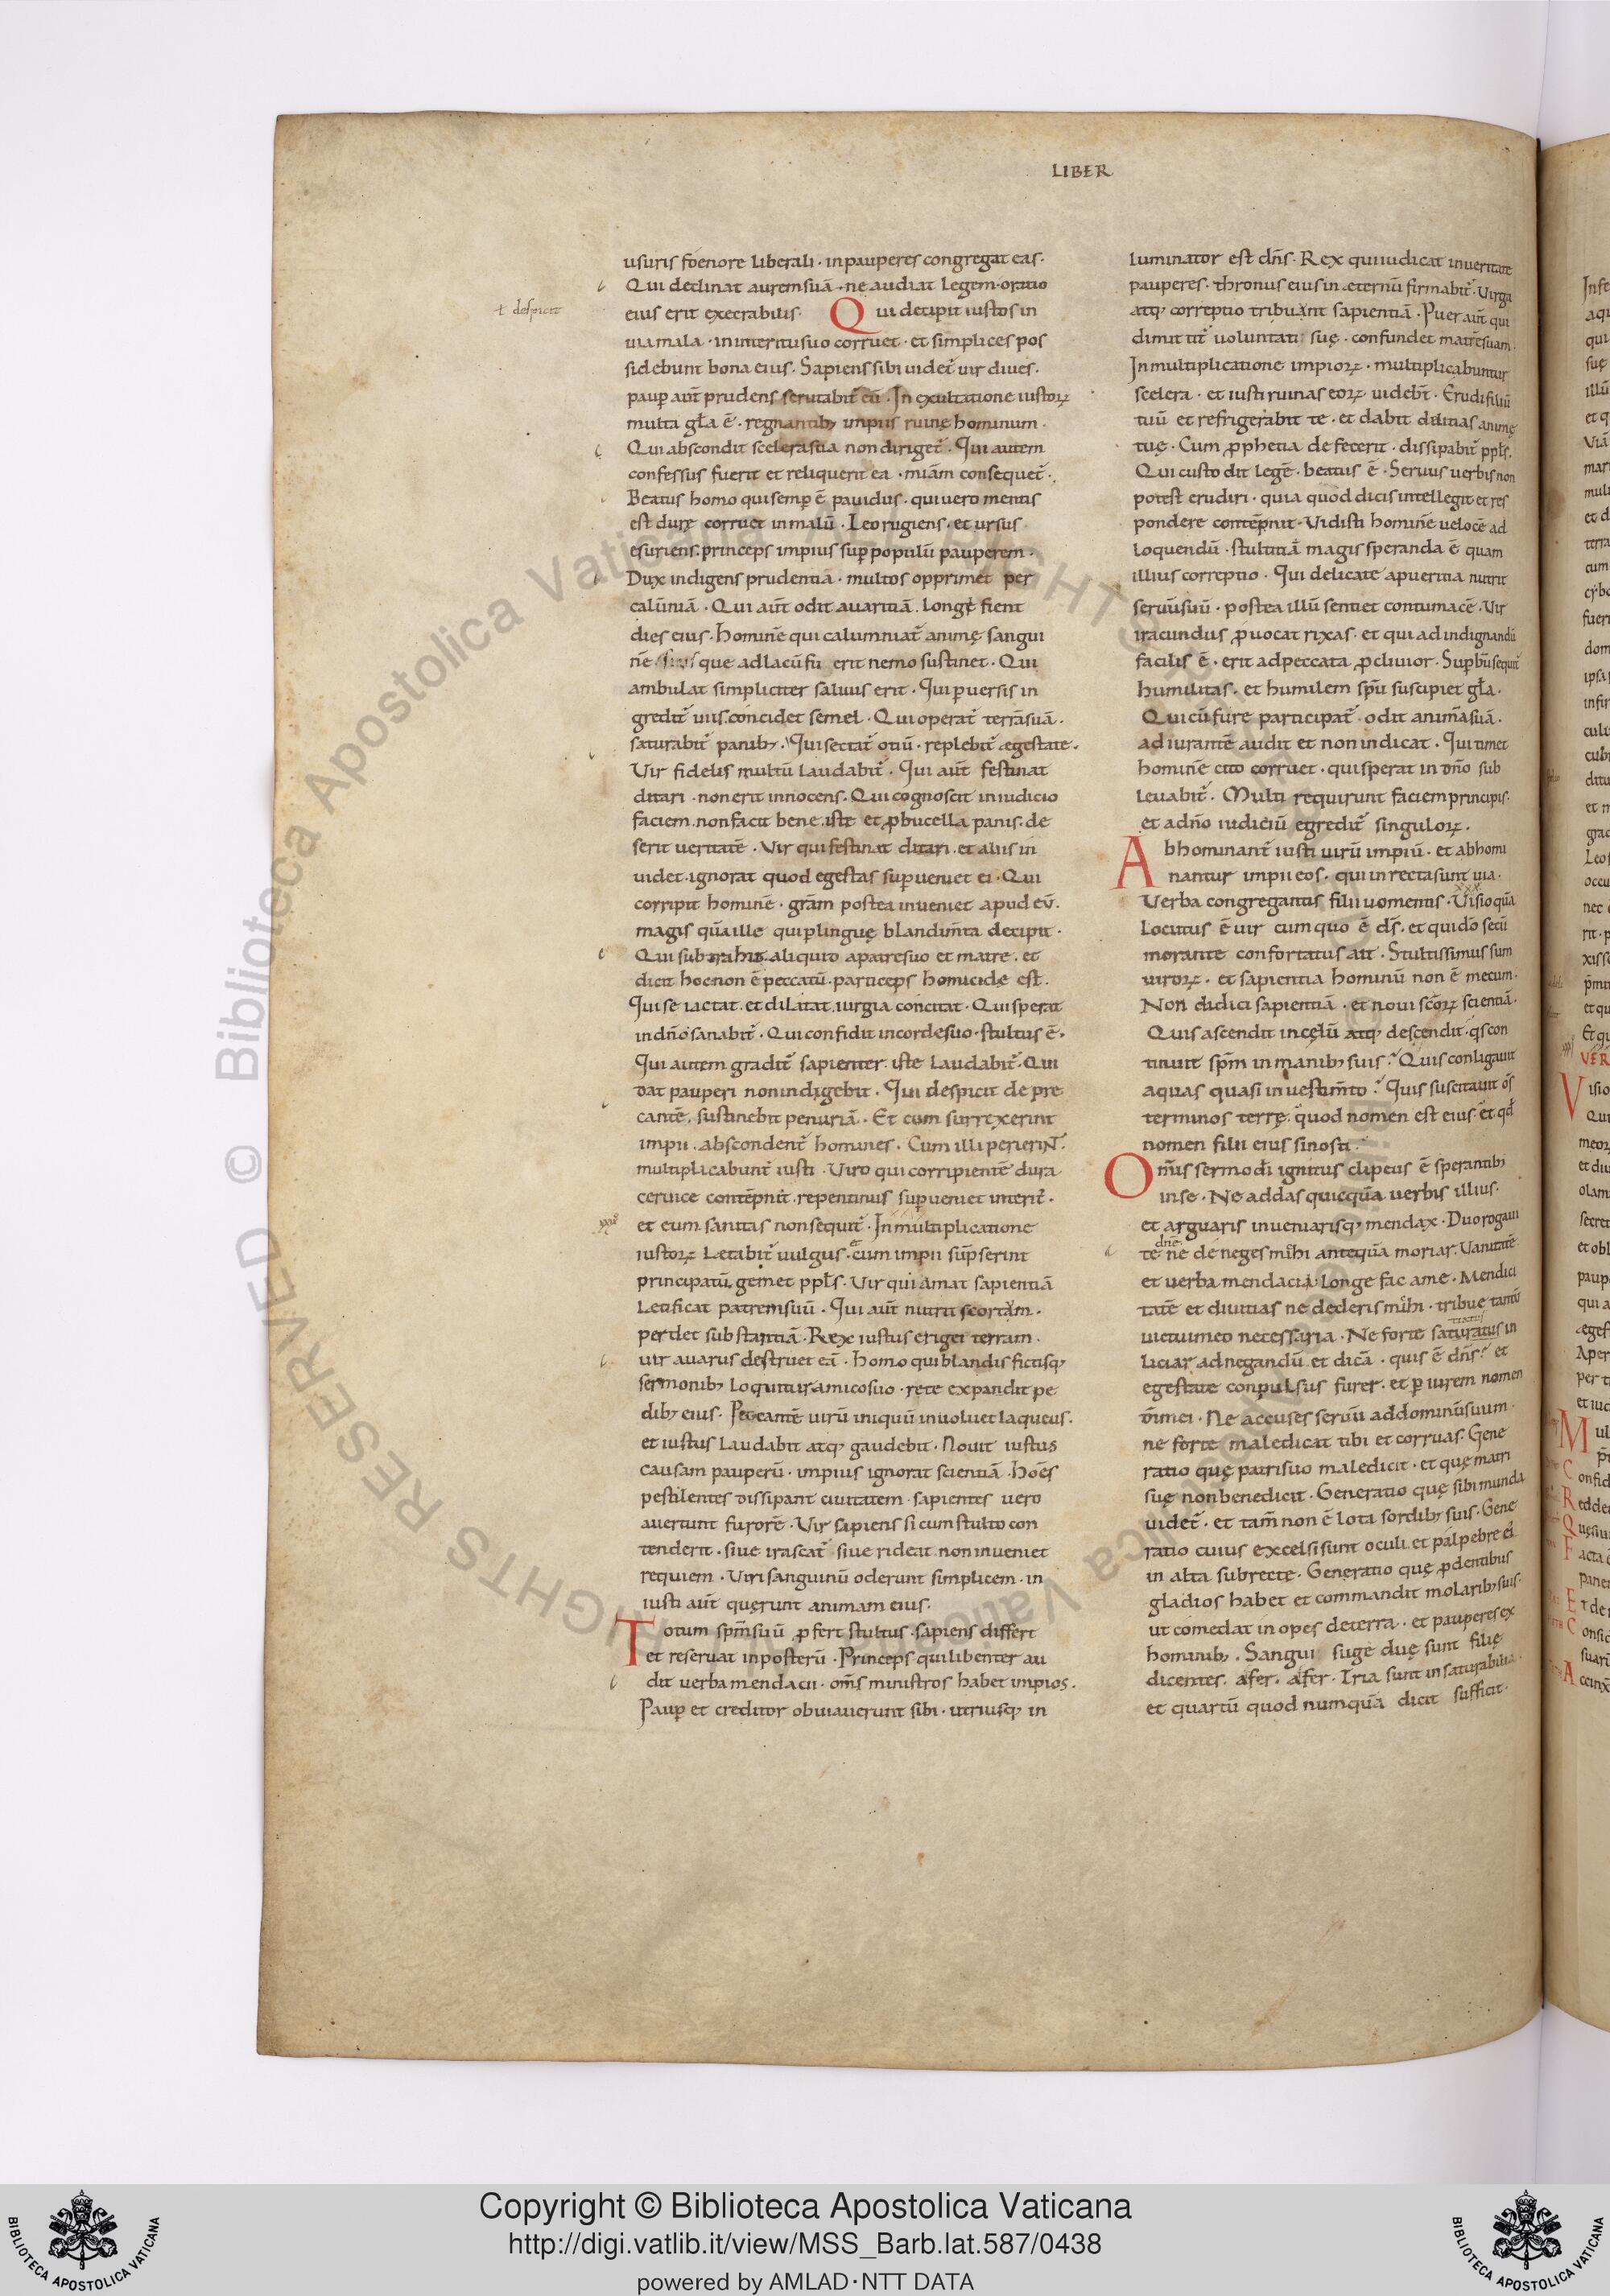 LIBER
usuris foenore liberali · in pauperes congregat eas ·
Qui declinat aurem suā · ne audiat legem · oratio
ł despicit
eius erit execrabilis · Qui decipit iustos in
uia mala · in interitu suo corruet · et simplices pos
sidebunt bona eius · Sapiens sibi uidet͛ uir diues ·
paup̱ aūt prudens scrutabit͛ eū · In exultatione iustoꝝ
multa gła ē · regnantibꝫ impiis ruinę hominum ·
Qui abscondit scelera sua non diriget͛ · Qui autem
confessus fuerit et reliquerit ea · miām consequet͛ ·
Beatus homo qui semꝑ ē pauidus · qui uero mentis
est durę corruet in malū · Leo rugiens · et ursus
esuriens · princeps impius suꝑ populū pauperem ·
Dux indigens prudentiā · multos opprimet per
calūniā · Qui aūt odit auaritiā · longę fient
dies eius · Hominē qui calumniat͛ animę sangui
nē que ad lacū fu erit nemo sustinet · Qui
ambulat simpliciter saluus erit · Qui ꝑuersis in
gredit͛ uiis · concidet semel · Qui operat͛ terrā suā ·
saturabit͛ panibꝫ · Qui sectat͛ otiū · replebit͛ ægestate ·
Vir fidelis multū laudabit͛ · Qui aūt festinat
ditari · non erit innocens · Qui cognoscit in iudicio
faciem · non facit bene · iste et ꝓ bucella panis · de
serit ueritatē · Vir qui festinat ditari · et aliis in
uidet · ignorat quod egestas suꝑueniet ei · Qui
corripit hominē · grām postea inueniet apud eū ·
magis quā ille qui ꝑ linguę blandim̄ta decipit ·
Qui subtrahit aliquid a patre suo et matre · et
dicit hoc non ē peccatū · particeps homicidę est ·
Qui se iactat · et dilatat iurgia concitat · Qui sperat
in dn̄o sanabit͛ · Qui confidit in corde suo · stultus ē ·
Qui autem gradit͛ sapienter · iste laudabit͛ · Qui
dat pauperi non indigebit · Qui despicit de pre
cantē · sustinebit penuriā · Et cum surrexerint
impii · abscondent͛ homines · Cum illi perierint ·
multiplicabunt͛ iusti · Viro qui corripientē dura
ceruice contēpnit · repentinus suꝑueniet interit͛ ·
et eum sanitas non sequit͛ · In multiplicatione
iustoꝝ lætabit͛ uulgus · cum impii sūpserint
principatū · gemet ppłs · Vir qui amat sapientiā
lętificat patrem suū · Qui aūt nutrit scortum ·
perdet substantiā · Rex iustus eriget terram ·
uir auarus destruet eā · Homo qui blandis fictisqꝫ
sermonibꝫ loquitur amico suo · rete expandit pe
dibꝫ eius · Peccantē uirū iniquū inuoluet laqueus ·
et iustus laudabit atqꝫ gaudebit · Nouit iustus
causam pauperū · impius ignorat scientiā · Hoēs
pestilentes dissipant ciuitatem · sapientes uero
auertunt furorē · Vir sapiens si cum stulto con
tenderit · siue irascat͛ siue rideat · non inueniet
requiem · Viri sanguinū oderunt simplicem · in
iusti aūt quęrunt animam eius ·
Totum spm̄ suū ꝓfert stultus · sapiens differt
et reseruat in posterū · Princeps qui libenter au
dit uerba mendacii · om̄s ministros habet impios ·
Pauꝑ et creditor obuiauerunt sibi · utriusqꝫ in
luminator est dn̄s · Rex qui iudicat in ueritate
pauperes · thronus eius in æternū firmabit͛ · Virga
atqꝫ correptio tribuant sapientiā · Puer aūt qui
dimittit͛ uoluntati suę · confundet matrē suam ·
In multiplicatione impioꝝ · multiplicabuntur
scelera · et iusti ruinas eoꝝ uidebt̄ · Erudi filiū
tuū et refrigerabit te · et dabit delitias animę
tuę · Cum ꝓphetia defecerit · dissipabit͛ ppłs ·
Qui custodit legē · beatus ē · Seruus uerbis non
potest erudiri · quia quod dicis intellegit · et res
pondere contēpnit · Vidisti hominē uelocē ad
loquendū · stultitiā magis speranda ē quam
illius correptio · Qui delicate a pueritia nutrit
seruū suū · postea illū sentiet contumacē · Vir
iracundus ꝓuocat rixas · et qui ad indignandū
facilis ē · erit ad peccata ꝓcliuior · Suꝑbū sequit͛
humilitas · et humilem spū suscipiet gła ·
Qui cū fure participat͛ · odit animā suā ·
adiurantē audit et non indicat · Qui timet
hominē cito corruet · qui sperat in dn̄o sub
leuabit͛ · Multi requirunt faciem principis ·
et a dn̄o iudiciū egredit͛ singuloꝝ ·
Abhominant͛ iusti uirū impiū · et abhomi
nantur impii eos · qui in recta sunt uia ·
Verba congregantis filii uomentis · Visio quā
locutus ē uir cum quo ē ds̄ · et qui dō secū
morante confortatus ait · Stultissimus sum
uiroꝝ · et sapientia hominū non ē mecum ·
Non didici sapientiā · et noui sc̄oꝝ scientiā ·
Quis ascendit in cęlū atqꝫ descendit · qs con
tinuit spm̄ in manibꝫ suis? Quis conligauit
aquas quasi in uestim̄to? Quis suscitauit om̄s
terminos terrę · quod nomen est eius · et qd̄
nomen filii eius si nosti ·
Om̄is sermo dī ignitus clipeus ē sperantibꝫ
in se · Ne addas quicquā uerbis illius ·
et arguaris inueniarisqꝫ mendax · Duo rogaui
dnē
te ne deneges mihi antequā moriar · Vanitatē
et uerba mendacia · longe fac a me · Mendici
tatē et diuitias ne dederis mihi · tribue tantū
uictui meo necessaria · Ne forte saturatus in
liciar ad negandū et dicā · quis ē dn̄s? et
egestate conpulsus furer · et ꝑiurem nomen
dī mei · Ne accuses seruū ad dominū suum ·
ne forte maledicat tibi et corruas · Gene
ratio quę patri suo maledicit · et quę matri
suę non benedicit · Generatio quę sibi munda
uidet͛ · et tam̄ non ē lota sordibꝫ suis · Gene
ratio cuius excelsi sunt oculi · et palpebre eī
in alta subrectę · Generatio quę ꝓ dentibus
gladios habet et commandit molaribꝫ suis ·
ut comedat inopes de terra · et pauperes ex
hominibꝫ · Sangui sugę duę sunt filię
dicentes · afer · afer · Tria sunt insaturabilia ·
et quartū quod numquā dicit sufficit ·
Copyright © Biblioteca Apostolica Vaticana
http://digi.vatlib.it/view/MSS_Barb.lat.587/0438
powered by AMLAD·NTT DATA